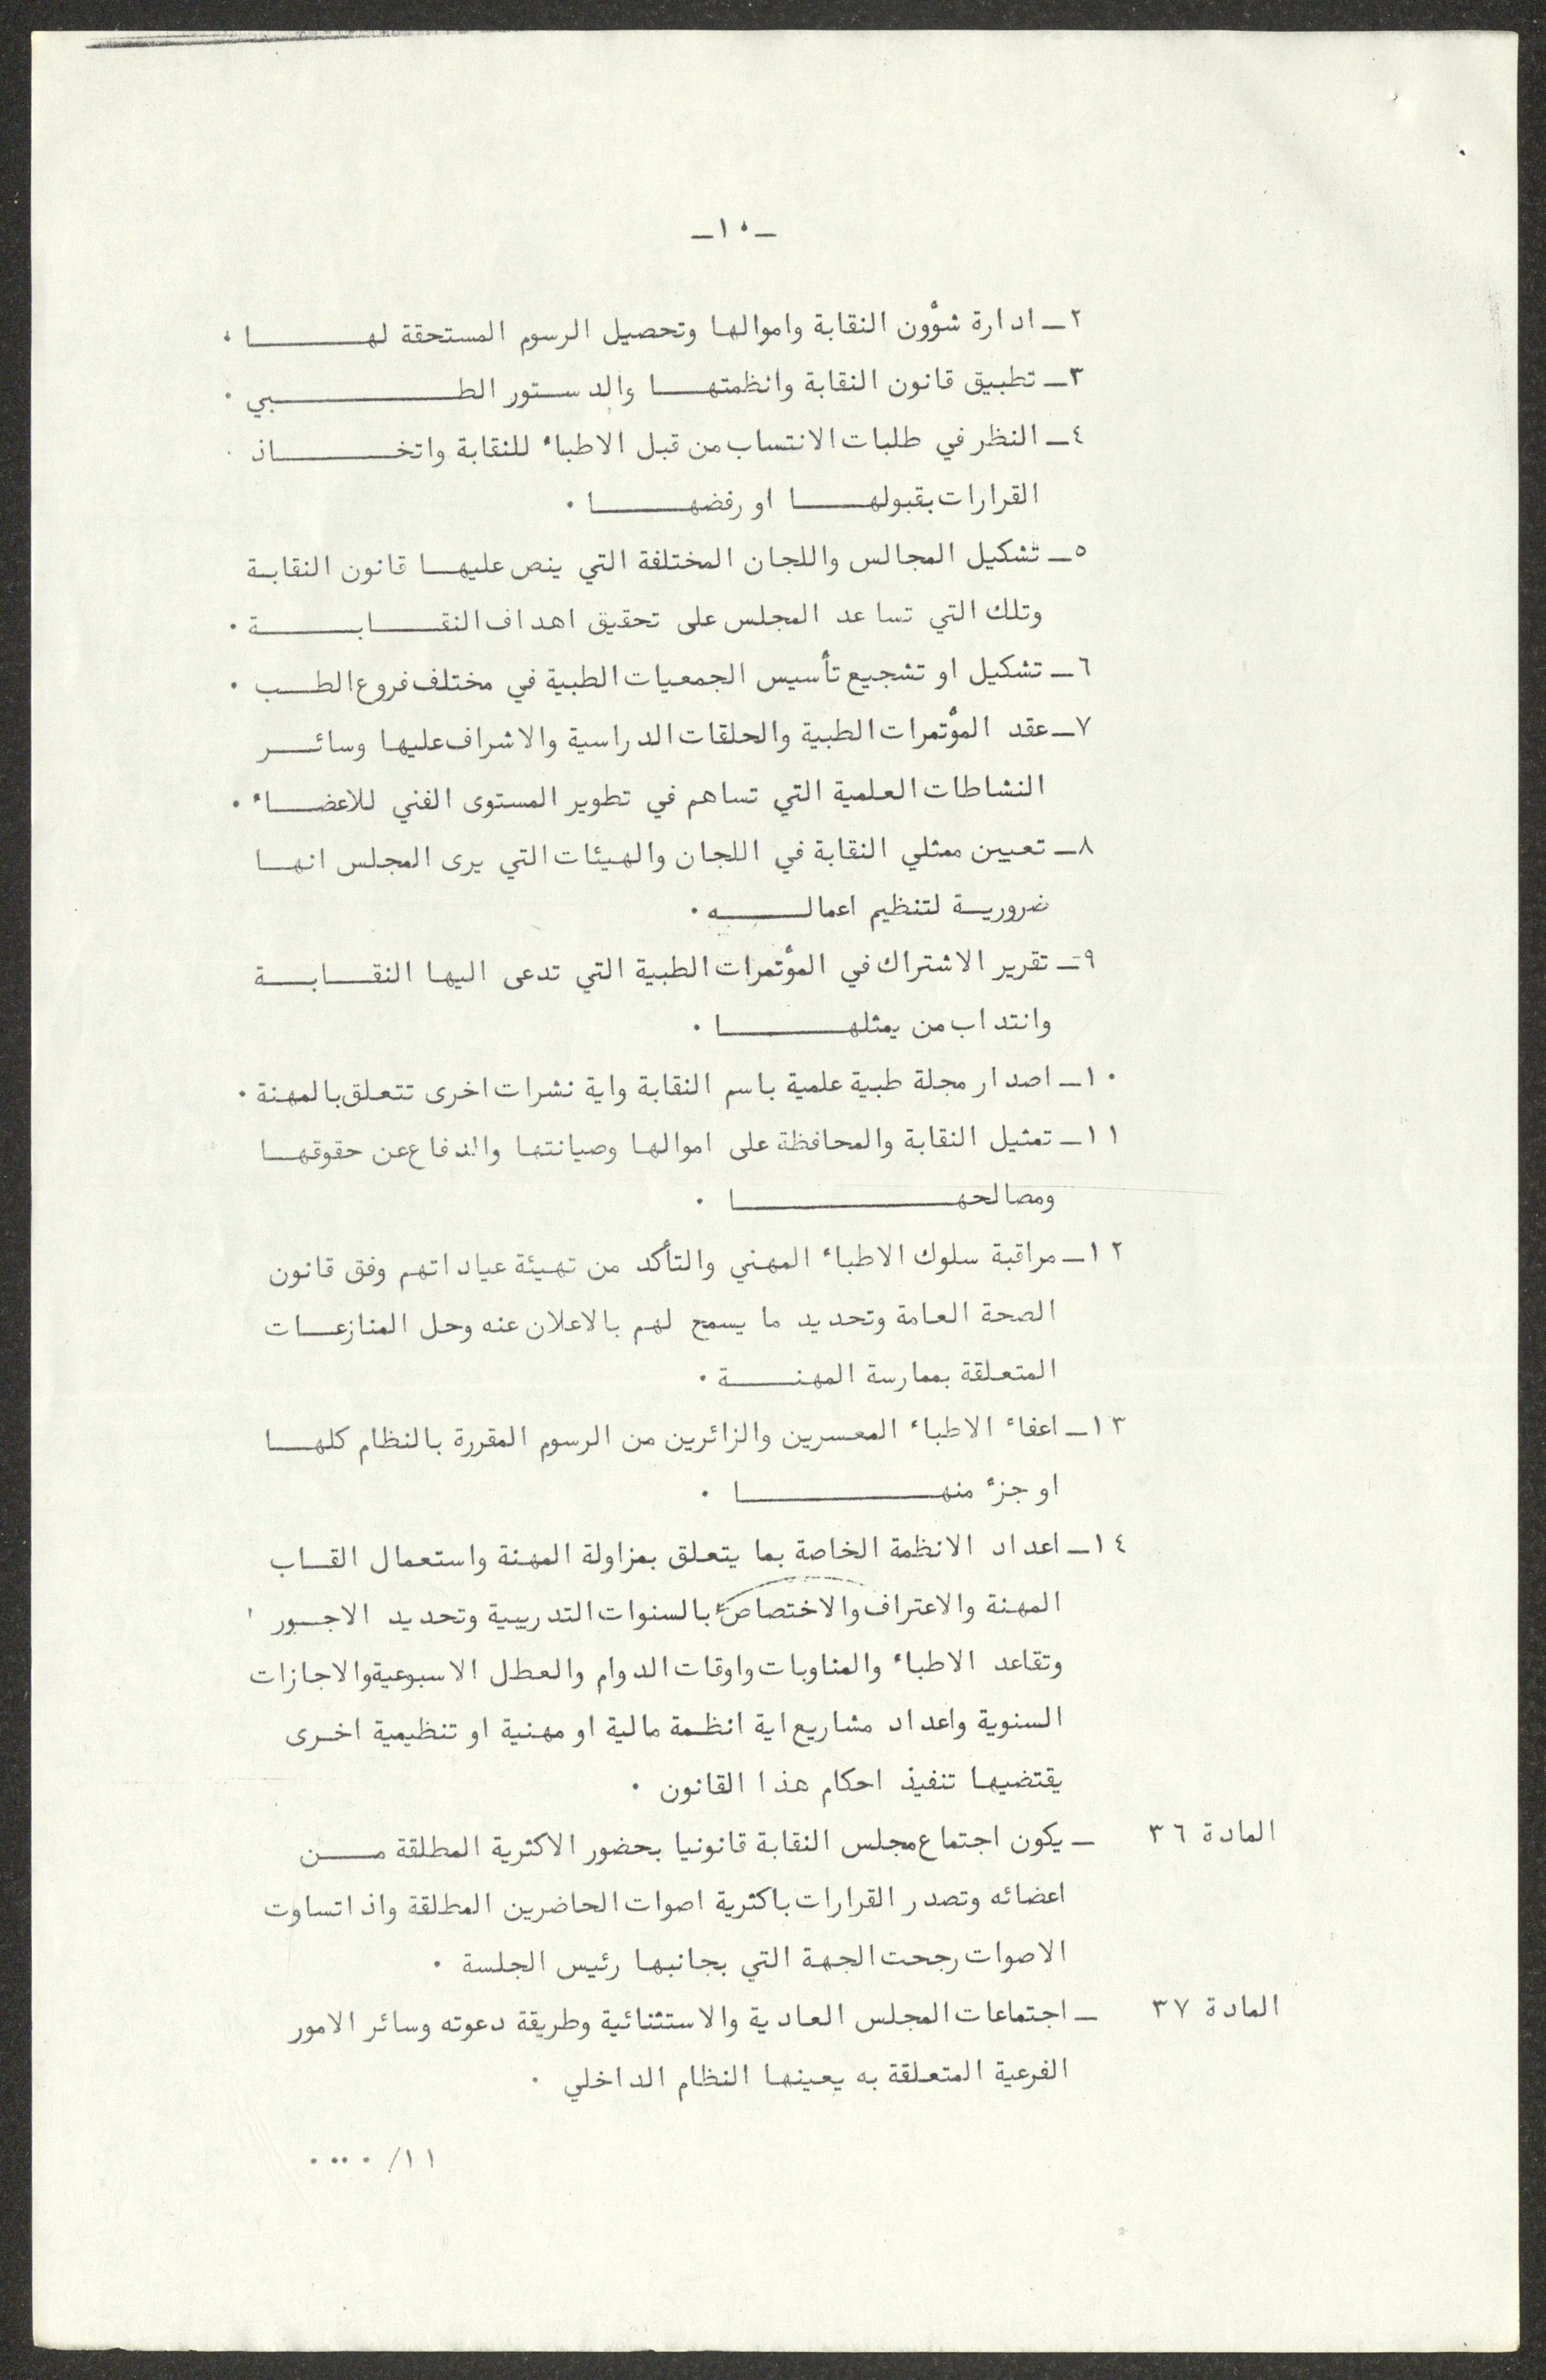 ـ١٠ـ
٢ـ ادارة شؤون النقابة واموالها وتحصيل الرسوم المستحقة لهـــــا ٠
٣ـ تطبيق قانون النقابة وانظمتهـــا والدستور الطـــــــبي ٠
٤ـ النظر في طلبات الانتساب من قبل الاطباء للنقابة واتخــــــاذ
القرارات بقبولهـــــا او رفضهـــــا ٠
٥ـ تشكيل المجالس واللجان المختلفة التي ينص عليهــا قانون النقابـة
وتلك التي تساعد المجلس على تحقيق اهداف النقـــابــــــة ٠
٦ـ تشكيل او تشجيع تأسيس الجمعيات الطبية في مختلف فروع الطــب ٠
٧ـ عقد المؤتمرات الطبية والحلقات الدراسية والاشراف عليها وسائــــر
النشاطات العلمية التي تساهم في تطوير المستوى الفني للاعضـــاء ٠
٨ـ تعيين ممثلي النقابة في اللجان والهيئات التي يرى المجلس انهــا
ضروريــة لتنظيم اعمالـــــه ٠
٩ـ تقرير الاشتراك في المؤتمرات الطبية التي تدعى اليها النقـــابـــة
وانتداب من يمثلهـــــــا ٠
١٠ـ اصدار مجلة طبية علمية باسم النقابة واية نشرات اخرى تتعلق بالمهنة ٠
١١ـ تمثيل النقابة والمحافظة على اموالها وصيانتها والدفاع عن حقوقهــا
ومصالحهــــــــــا ٠
١٢ـ مراقبة سلوك الاطباء المهني والتأكد من تهيئة عياداتهم وفق قانون
الصحة العامة وتحديد ما يسمح لهم بالاعلان عنه وحل المنازعــات
المتعلقة بممارسة المهنـــــة ٠
١٣ـ اعفاء الاطباء المعسرين والزائرين من الرسوم المقررة بالنظام كلهــا
او جزء منهــــــــــا ٠
١٤ـ اعداد الانظمة الخاصة بما يتعلق بمزاولة المهنة واستعمال القــاب
المهنة والاعتراف والاختصاص بالسنوات التدريبية وتحديد الاجــور
وتقاعد الاطباء والمناوبات واوقات الدوام والعطل الاسبوعية والاجازات
السنوية واعداد مشاريع اية انظـمة مالية او مهنية او تنظيمية اخـرى
يقتضيها تنفيذ احكام هذا القانون ٠
المادة ٣٦ ـ يكون اجتماع مجلس النقابة قانونيا بحضور الاكثرية المطلقة مـــن
اعضائه وتصدر القرارات باكثرية اصوات الحاضرين المطلقة واذا تساوت
الاصوات رجحت الجهة التي بجانبها رئيس الجلسة ٠
المادة ٣٧ ـ اجتماعات المجلس العادية والاستثنائية وطريقة دعوته وسائر الامور
الفرعية المتعلقة به يعينها النظام الداخلي ٠
١١/ ٠٠٠٠